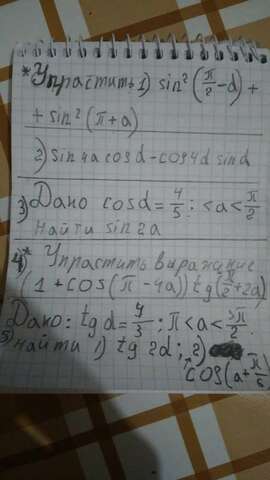 *Упрастить 1) sin²(π/2-d)+
+sin²(π+a)
2) sin 4a cosd-cos4d sind
3) Дано cosd=4/5; <a<π/2
найти sin2a
4)* Упрастить выражение
(1+cos(π-4a)) tg(π/2+2a)
5) Дано: tgd=4/3; π<a<3π/2
найти 1) tg 2d; 2)
cos(a+π/6)